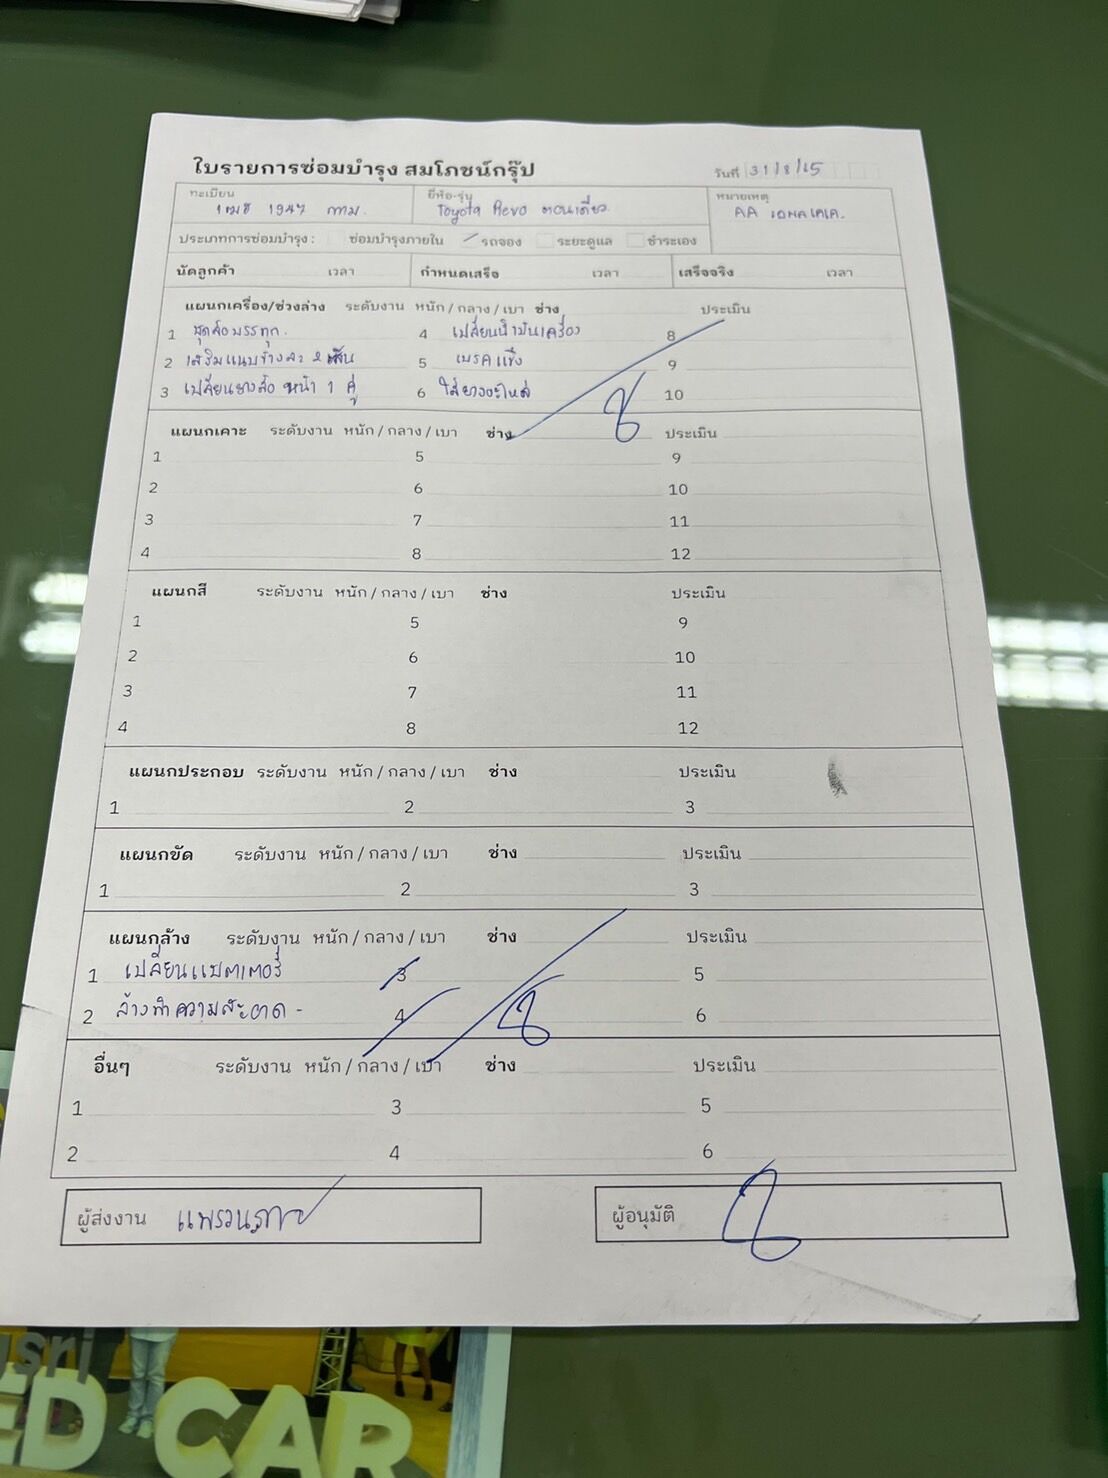 ใบรายการซ่อมบำรุง สมโภชน์กรุ๊ป
วันที่ 31/8/65
ทะเบียน 1ฒช 1947 กทม.
ยี่ห้อ-รุ่น Toyota Revo ตอนเดียว
หมายเหตุ AA
ประเภทการซ่อมบำรุง : ซ่อมบำรุงภายใน รถจอง ระยะดูแล ชำระเอง
นัดลูกค้า เวลา กำหนดเสร็จ เวลา เสร็จจริง เวลา
แผนกเครื่อง/ช่วงล่าง ระดับงาน หนัก / กลาง / เบา ช่าง ประเมิน
1 ชุดล้อบรรทุก. 4 เปลี่ยนน้ำมันเครื่อง 8
2 เสริมแหนบข้างละ 2 5 เบรคแข็ง 9
3 เปลี่ยนยางล้อ หน้า 1 คู่ 6 ใส่ยางอะไหล่ 10
แผนกเคาะ ระดับงาน หนัก / กลาง / เบา ช่าง ประเมิน
1 5 9
2 6 10
3 7 11
4 8 12
แผนกสี ระดับงาน หนัก / กลาง / เบา ช่าง ประเมิน
1 5 9
2 6 10
3 7 11
4 8 12
แผนกประกอบ ระดับงาน หนัก / กลาง / เบา ช่าง ประเมิน
1 2 3
แผนกขัด ระดับงาน หนัก / กลาง / เบา ช่าง ประเมิน
1 2 3
แผนกล้าง ระดับงาน หนัก / กลาง / เบา ช่าง ประเมิน
1 เปลี่ยนแบตเตอรี่ 3 5
2 ล้างทำความสะอาด - 4 6
อื่นๆ ระดับงาน หนัก / กลาง / เบา ช่าง ประเมิน
1 3 5
2 4 6
ผู้ส่งงาน แพรวนภา
ผู้อนุมัติ
usri
ED CAR